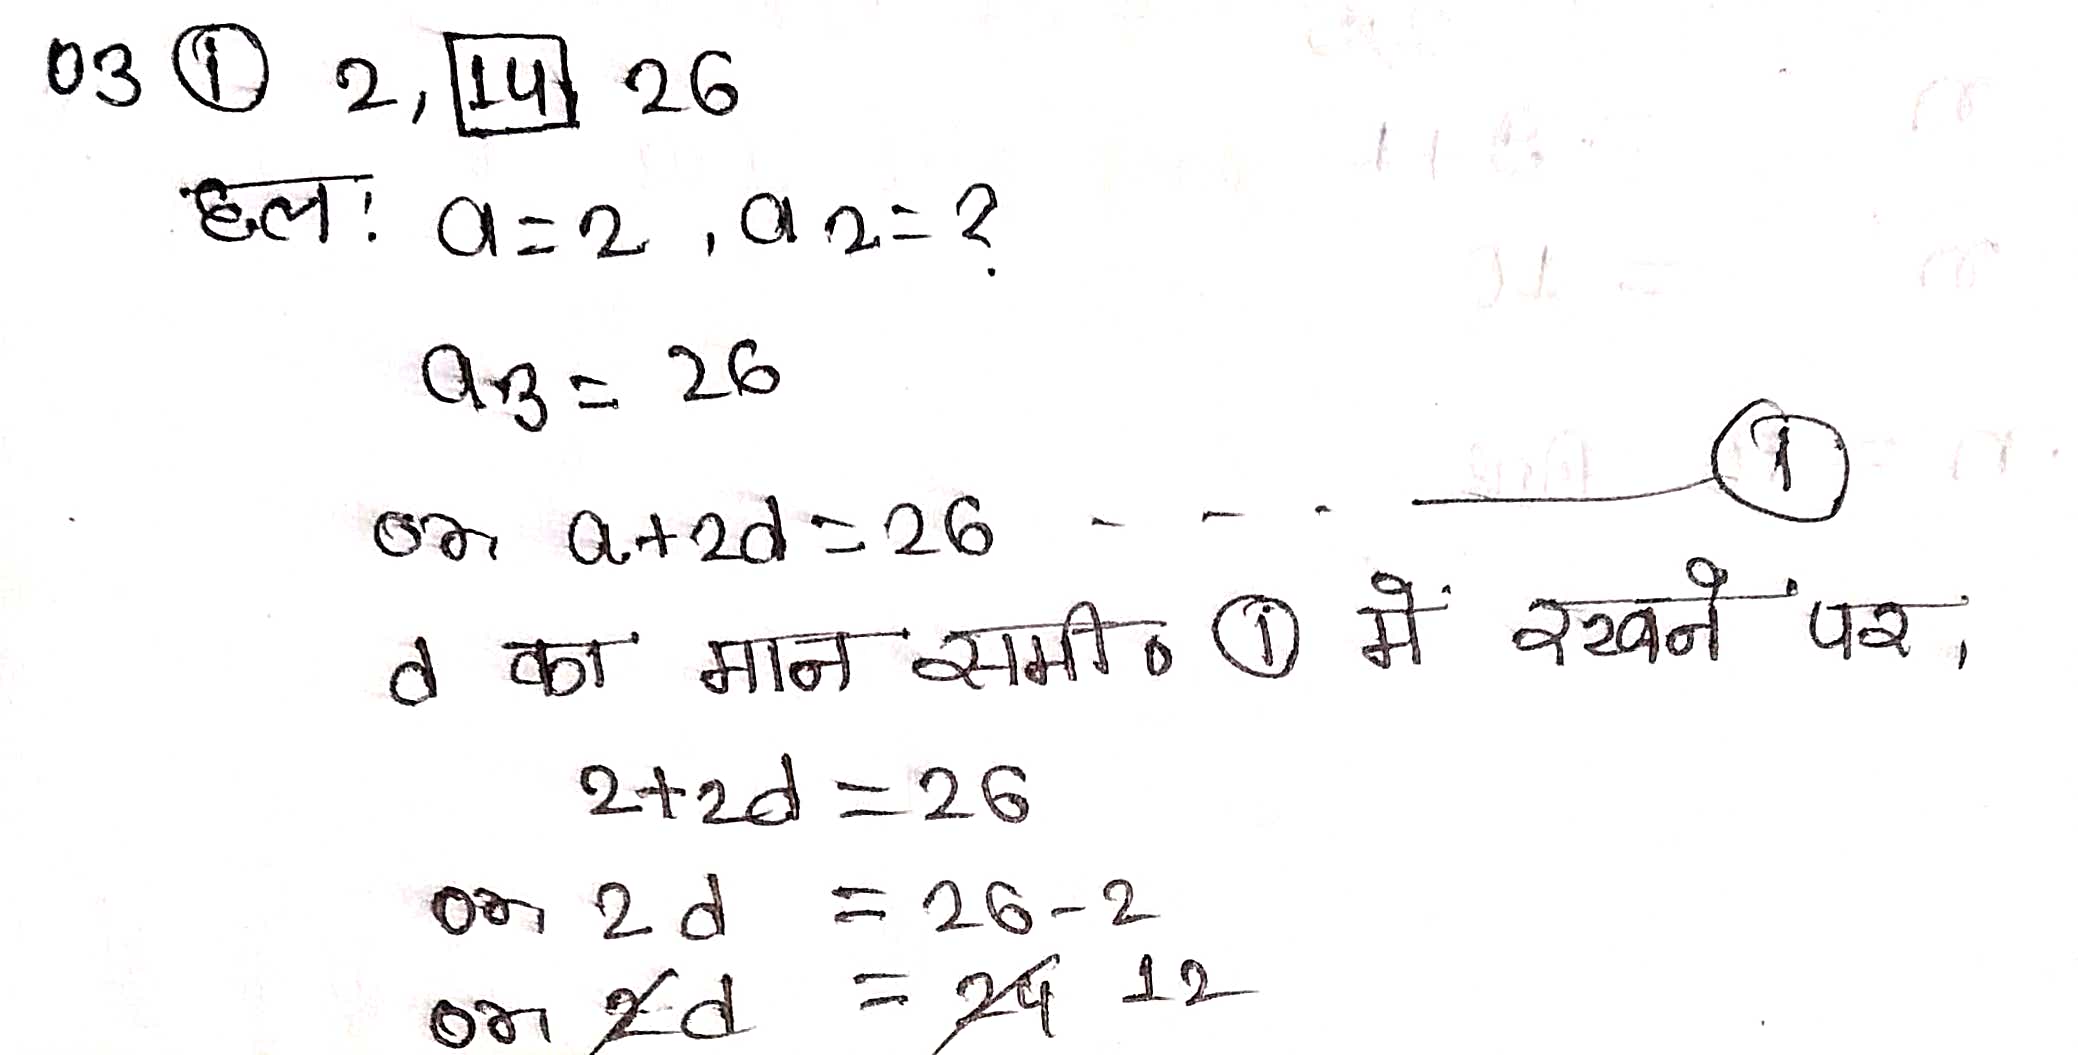 03 (i) 2, 14 26
हल: a=2, a2=?
a3 = 26
or a+2d=26 - - . ——— (i)
d का मान समी० (i) में रखने पर,
2+2d =26
or 2d = 26-2
or 2d = 24 12